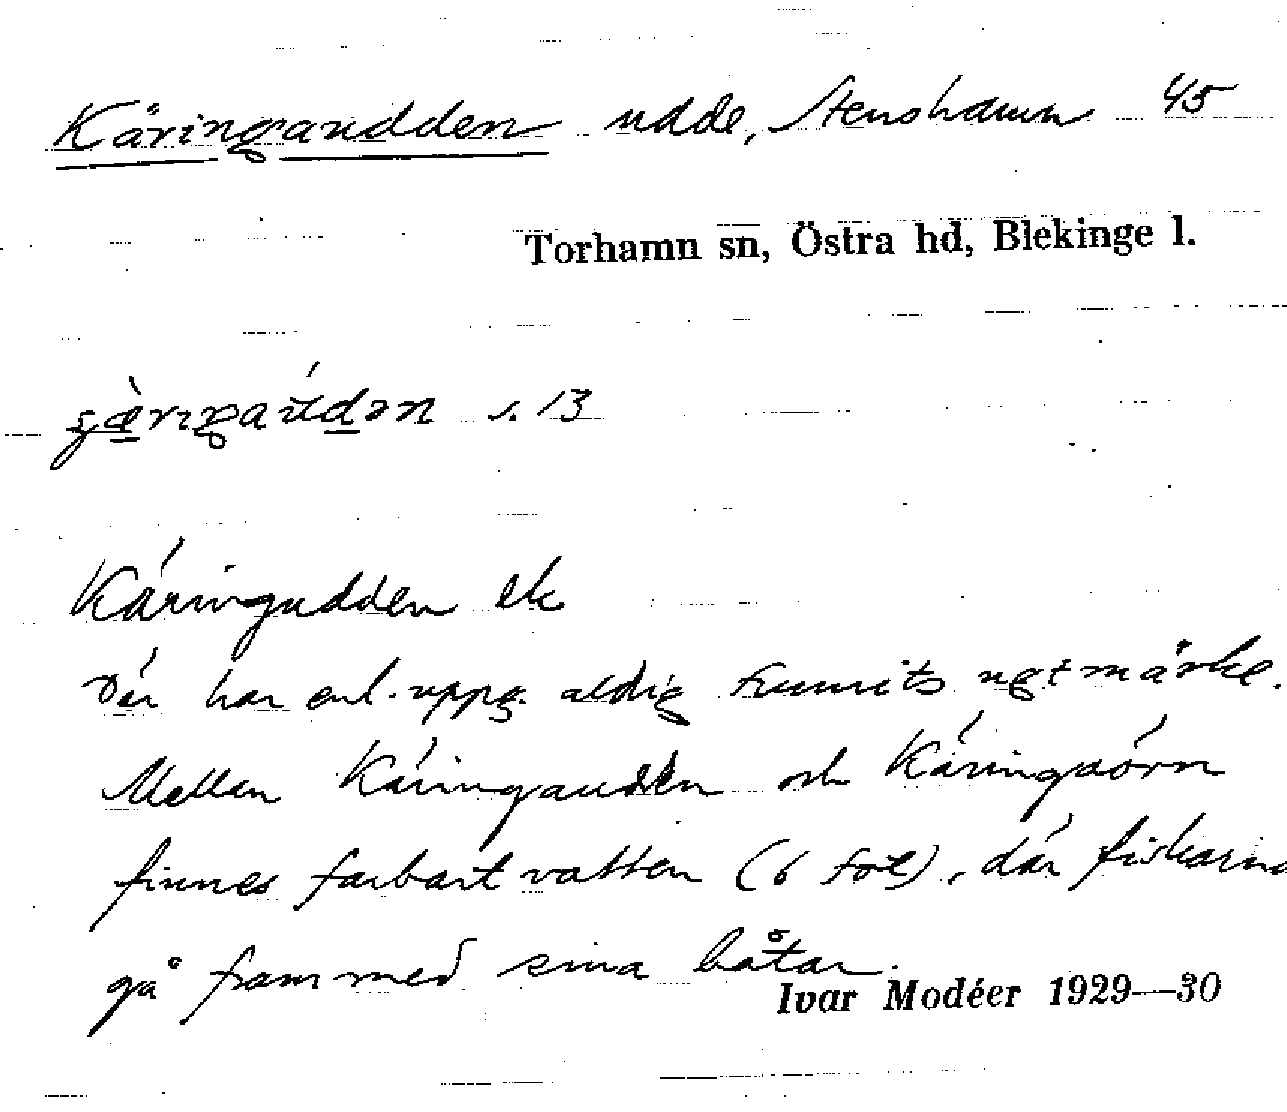 Käringaudden udde, Stenshamn 45
Torhamn sn, Östra hd, Blekinge l.
s. 13
Käringudden ek
Där har enl. uppg. aldrig funnits ugtmärke.
Mellan Käringaudden och Käringaörn
finnes farbart vatten (6 fot), där fiskarna
gå fram med sina båtar.
Ivar Modéer 1929—30